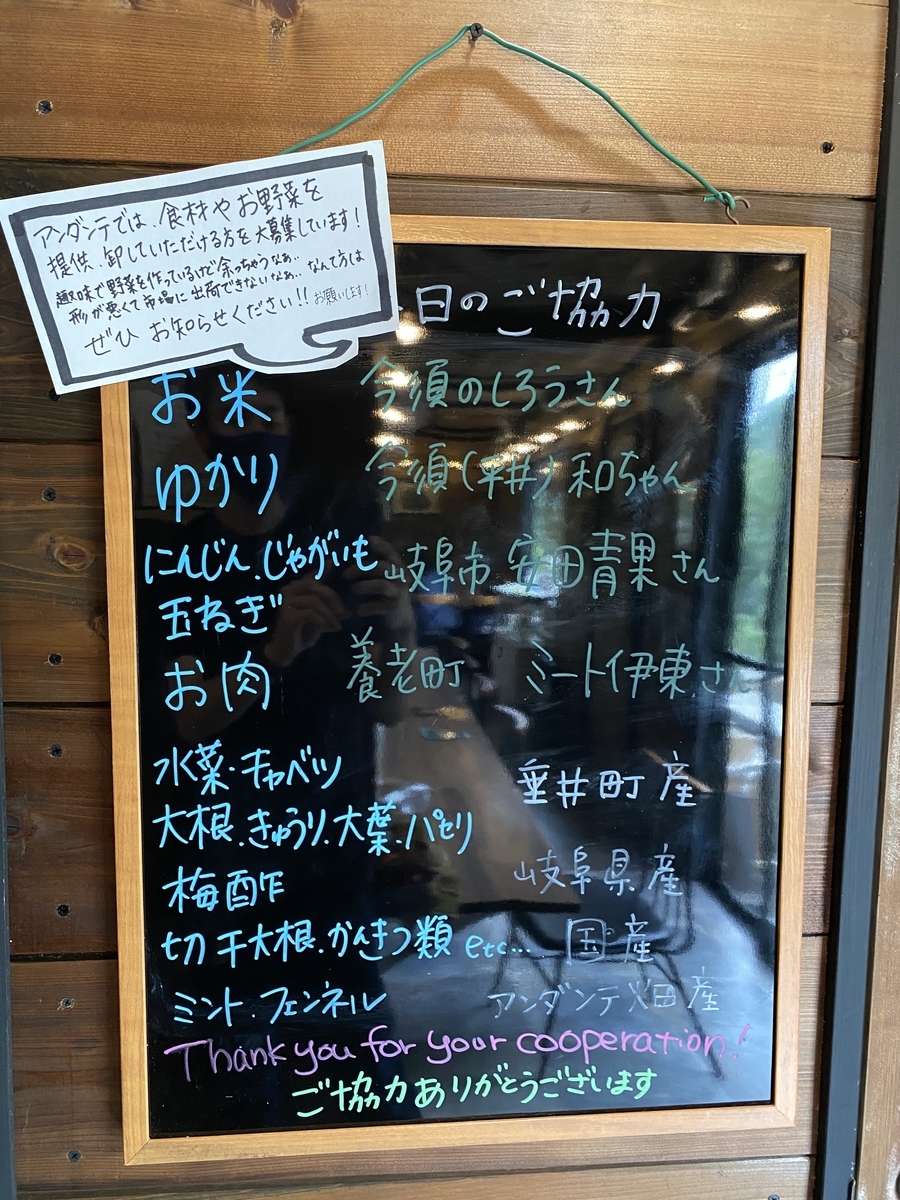 アンダンテでは、食材やお野菜を
提供、卸していただける方を大募集しています!
趣味で野菜を作っているけど余っちゃうなぁ.. 
形が悪くて市場に出荷できないなぁ.. なんて方は
ぜひ お知らせください!! お願いします!
日のご協力
お米 今須のしろうさん
ゆかり 今須(平井)和ちゃん
にんじん.じゃがいも 岐阜市 安田青果さん
玉ねぎ
お肉 養老町 ミート伊東さん
水菜・キャベツ 垂井町産
大根.きゅうり.大葉.パセリ
梅酢 岐阜県産
切干大根.かんきつ類 etc... 国産
ミント.フェンネル アンダンテ畑産
Thank you for your cooperation!
ご協力ありがとうございます